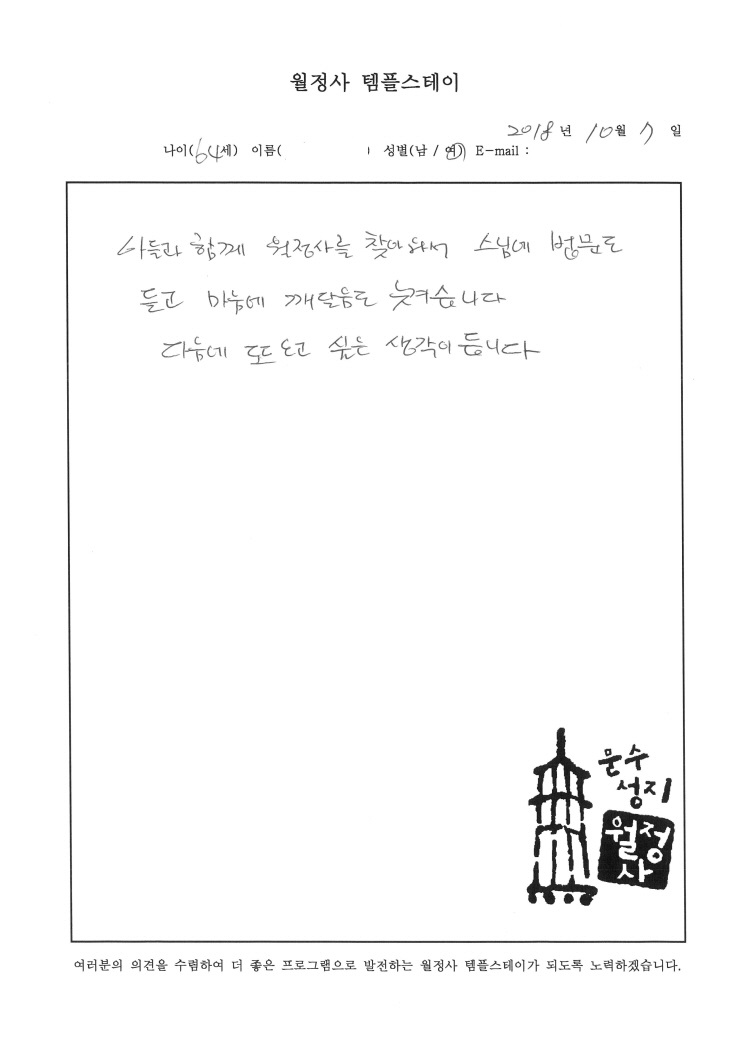 월정사 템플스테이
2018 년 10 월 7 일
나이(64세) 이름( ) 성별(남 / 여) E-mail :
아들과 함께 월정사를 찾아와서 스님에 법문도
듣고 마음에 깨달음도 늣겨습니다
다음에 또 오고 싶은 생각이 듬니다
문수
성지
월정
사
여러분의 의견을 수렴하여 더 좋은 프로그램으로 발전하는 월정사 템플스테이가 되도록 노력하겠습니다.